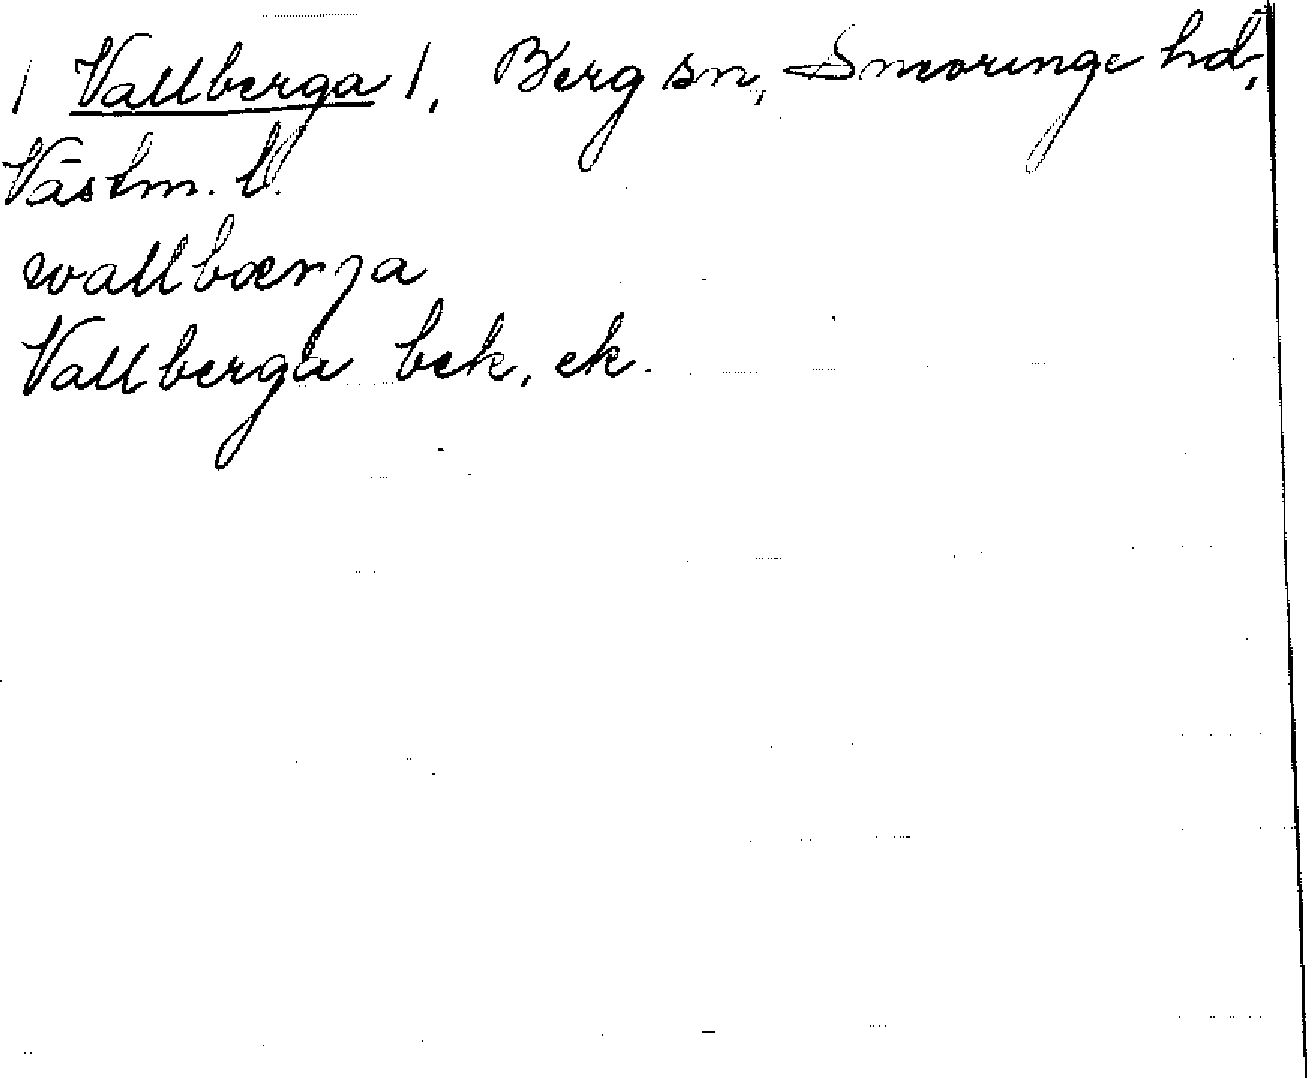 / Vallberga /, Berg sn, Snevringe hd,
Västm. l.
wallbærja
Vallberga bek. ek.